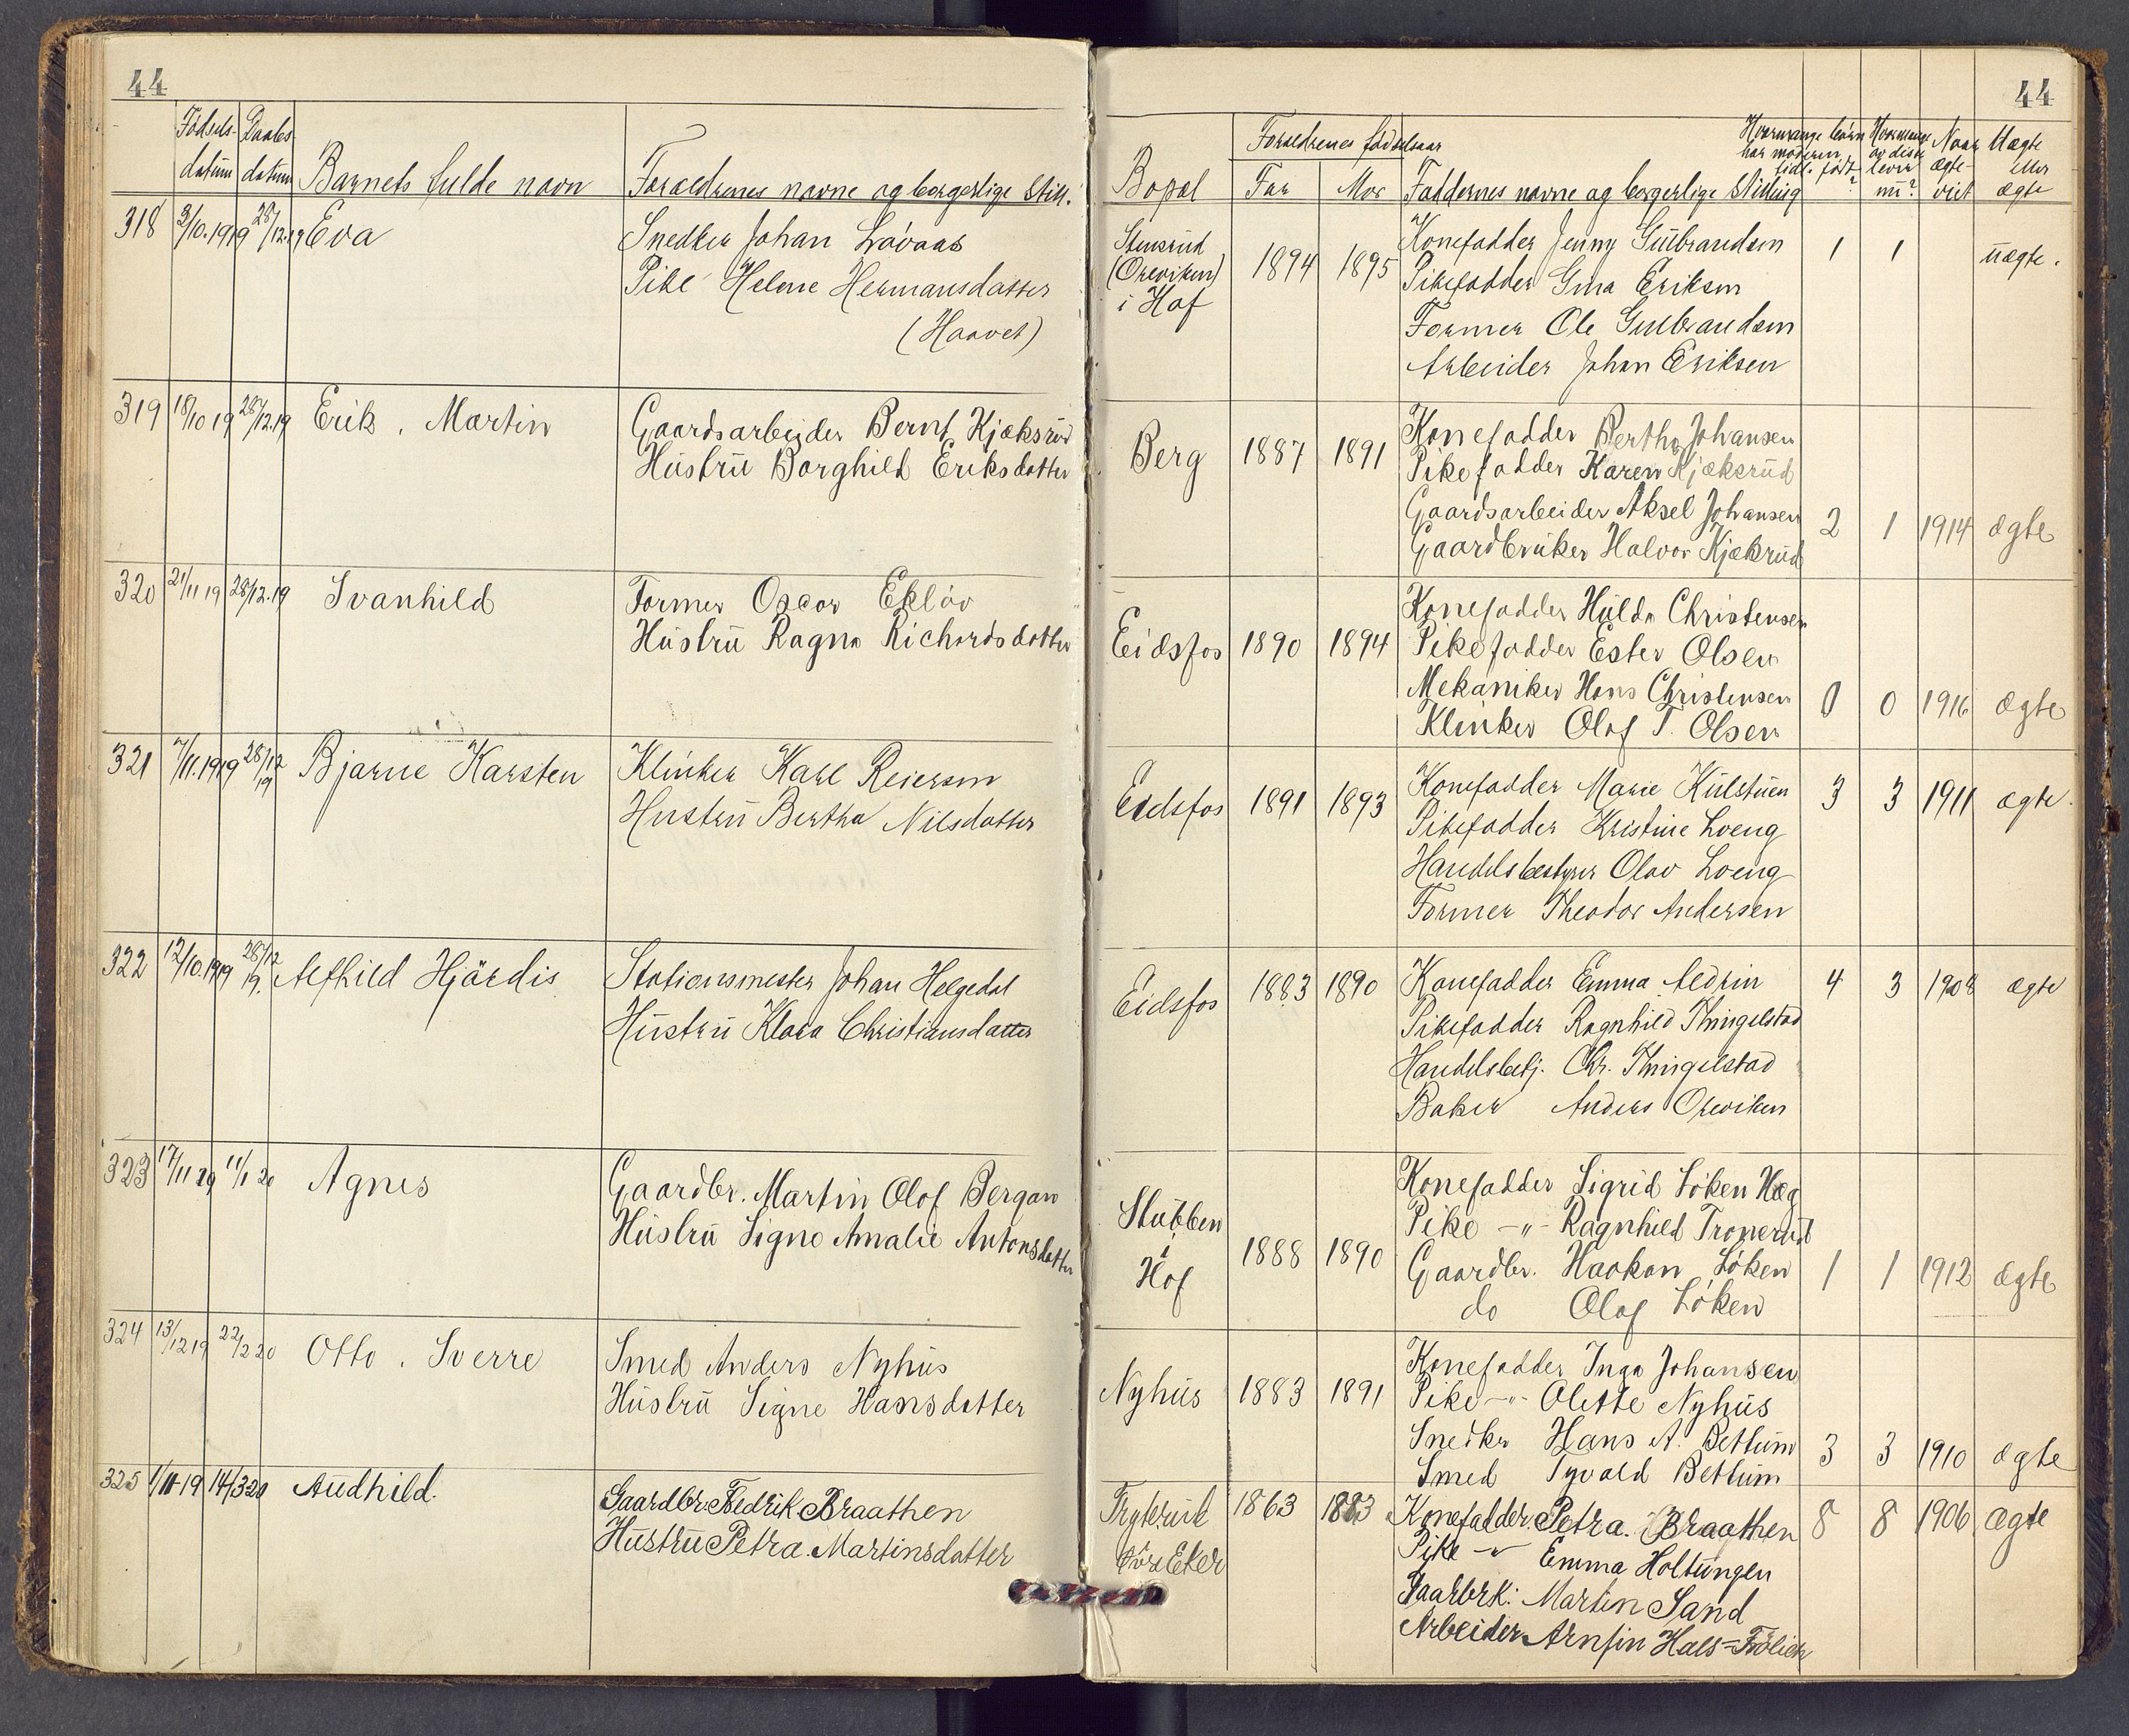 44
Fødsels- Daabs-
datum datum Barnets fulde navn Foraeldrenes navne og borgerlige Still.
318 3/10.1919 28/12.19 Eva Snedker Johan Lövaas
Pike Helene Hermansdatter
(Haavet)
319 18/10 19 28/12.19 Erik. Martin Gaardsarbeider Bernt Kjæksrud
Hustrü Borghild Eriksdatter
320 21/11 19 28/12.19 Svanhild Former Oscar Eklöv
Hüstrü Ragna Richardsdatter
321 7/11.1919 28/12 19 Bjarne Karsten Klinker Karl Reiersen
Hustrü Bertha Nilsdatter
322 12/10.1919 28/12 19. Alfhild Hjärdis Stationsmester Johan Helgedal
Hüstrü Klara Christiansdatter
323 17/11 19 11/1 20 Agnes Gaardbr. Martin Olaf Bergan
Hüstrü Signe Amalie Antonsdatter
324 13/12 19 22/2 20 Otto. Sverre Smed Anders Nyhüs
Hüstrü Signe Hansdatter
325 1/11-19 14/3 20 Audhild. Gaardbr. Fredrik Braathen
Hüstrü Petra. Martinsdatter
44
Foraeldrenes fødselsaar Hvormange börn Hvormange Naar Uægte
har moderen av disse ægte- eller
Bopæl Far Mor Faddernes navne og borgerlige Stilling tidl. født? lever nu? viet ægte
Stensrud
(Oreviken)
i Hof
1894 1895 Konefadder Jenny Gülbrandsen 1 1 üægte.
Pikefadder Gina Eriksen
Former Ole Gulbrandsen
Arbeider Johan Eriksen
Berg 1887 1891 Konefadder Bertha Johansen
Pikefadder Karen Kjæksrüd
Gaardsarbeider Aksel Johansen 2 1 1914 ægte
Gaardbrüker Halvor Kjæksrüd
Eidsfos 1890 1894 Konefadder Hülda Christensen
Pikefadder Ester Olsen
Mekaniker Hans Christensen 0 0 1916 ægte
Klinker Olaf T. Olsen
Eidsfos 1891 1893 Konefadder Marie Külstüen 3 3 1911 ægte.
Pikefadder Kristine Loeng
Handelsbestyrer Olav Loeng
Former Theodor Andersen
Eidsfos 1883 1890 Konefadder Emma Aedrin 4 3 1908 ægte
Pikefadder Ragnhild Thingelstad
Handelsbetj. Chr. Thingelstad
Baker Anders Oreviken
Stübben
i
Hof
1888 1890 Konefadder Sigrid Löken Hæg
Pike -"- Ragnhild Tronerüd
Gaardbr. Haakon Löken 1 1 1912 ægte
do Olaf Löken
Nyhüs 1883 1891 Konefadder Inga Johansen
Pike -"- Olette Nyhüs
Snedker Hans A. Bettüm 3 3 1910 ægte
Smed Tyvald Bettüm
Tryterud
Eker
1863 1883 Konefadder. Petra. Braathen 8 8 1906 ægte
Pike -"- Emma Holtüngen
Gaarbrk: Martin Sand
Arbeider Arnfin Hals=Frölich